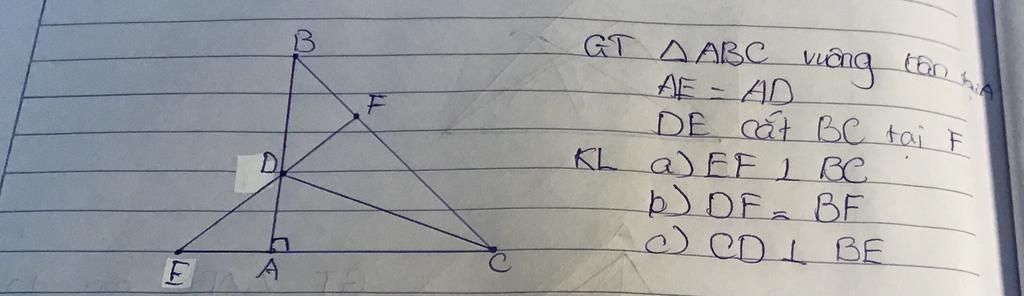 B
F
D
E
A
C
GT ΔABC vuông cân tại A
AE = AD
DE cắt BC tại F
KL a) EF ⊥ BC
b) DF = BF
c) CD ⊥ BE